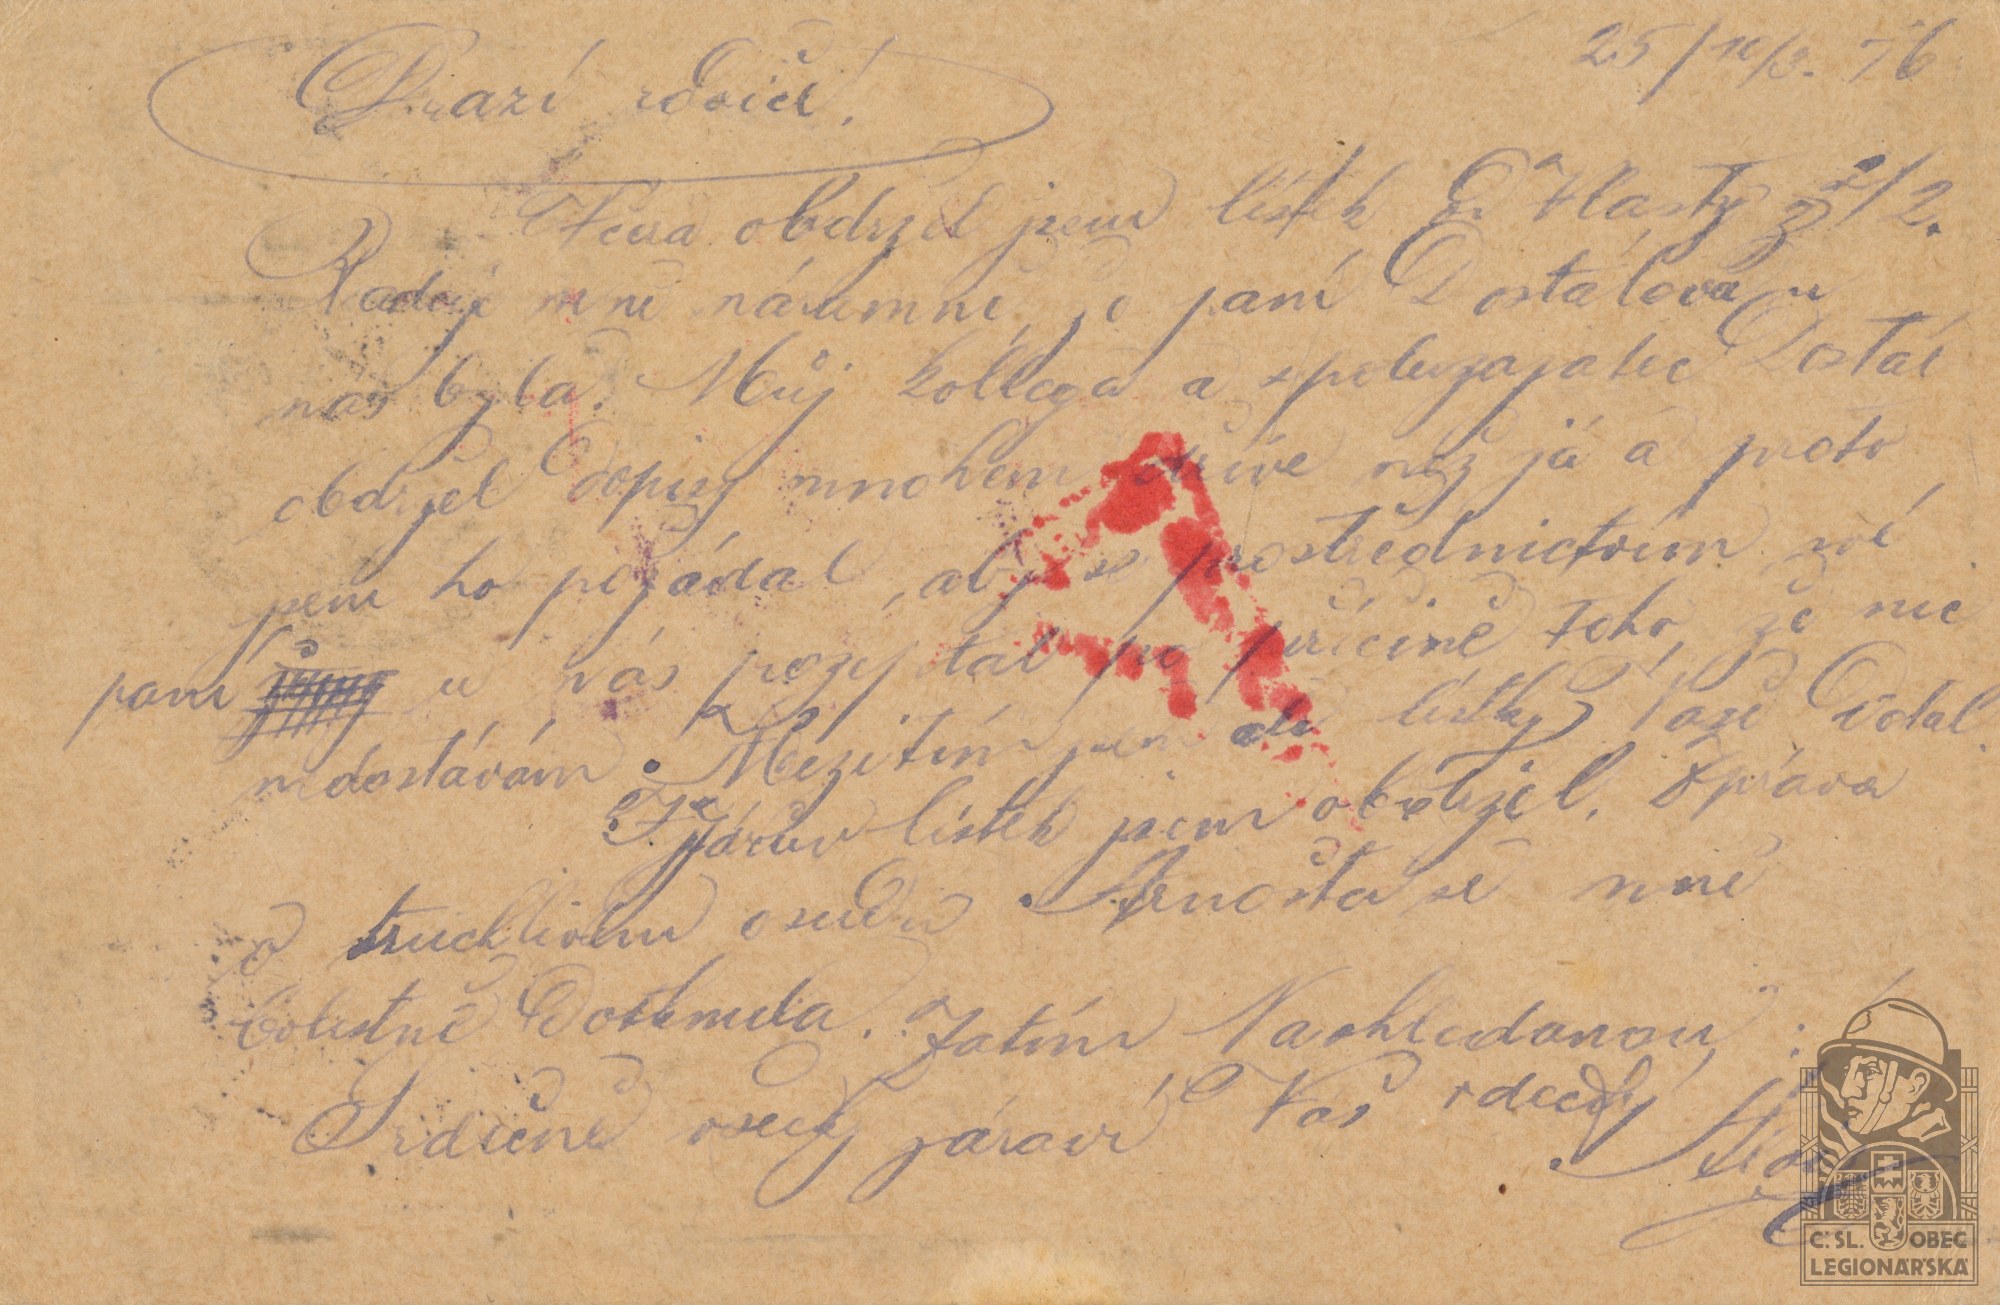 25/
Drazí rodiče!
Včera obdržel jsem lístek od Vlasty z 2/2.
Raduji mně náramně, že paní Dostálova u
nás byla. Můj kollega a spoluzajatec Dostál
obdržel dopisy mnohem dříve než já a proto
jsem ho požádal, aby se prostřednictvím své
paní u nás pozeptal po příčině toho, že nic
nedostávám. Mezitím jsem ale lístky Vaše dostal.
Járův lístek jsem obdržel. Zpráva
o truchlivém osudu Arnošta se mně
bolestně dotknula. Zatím "Nashledanou"
Srdečně všecky zdraví Váš vděčný
C.SL. OBEC
LEGIONÁŘSKÁ